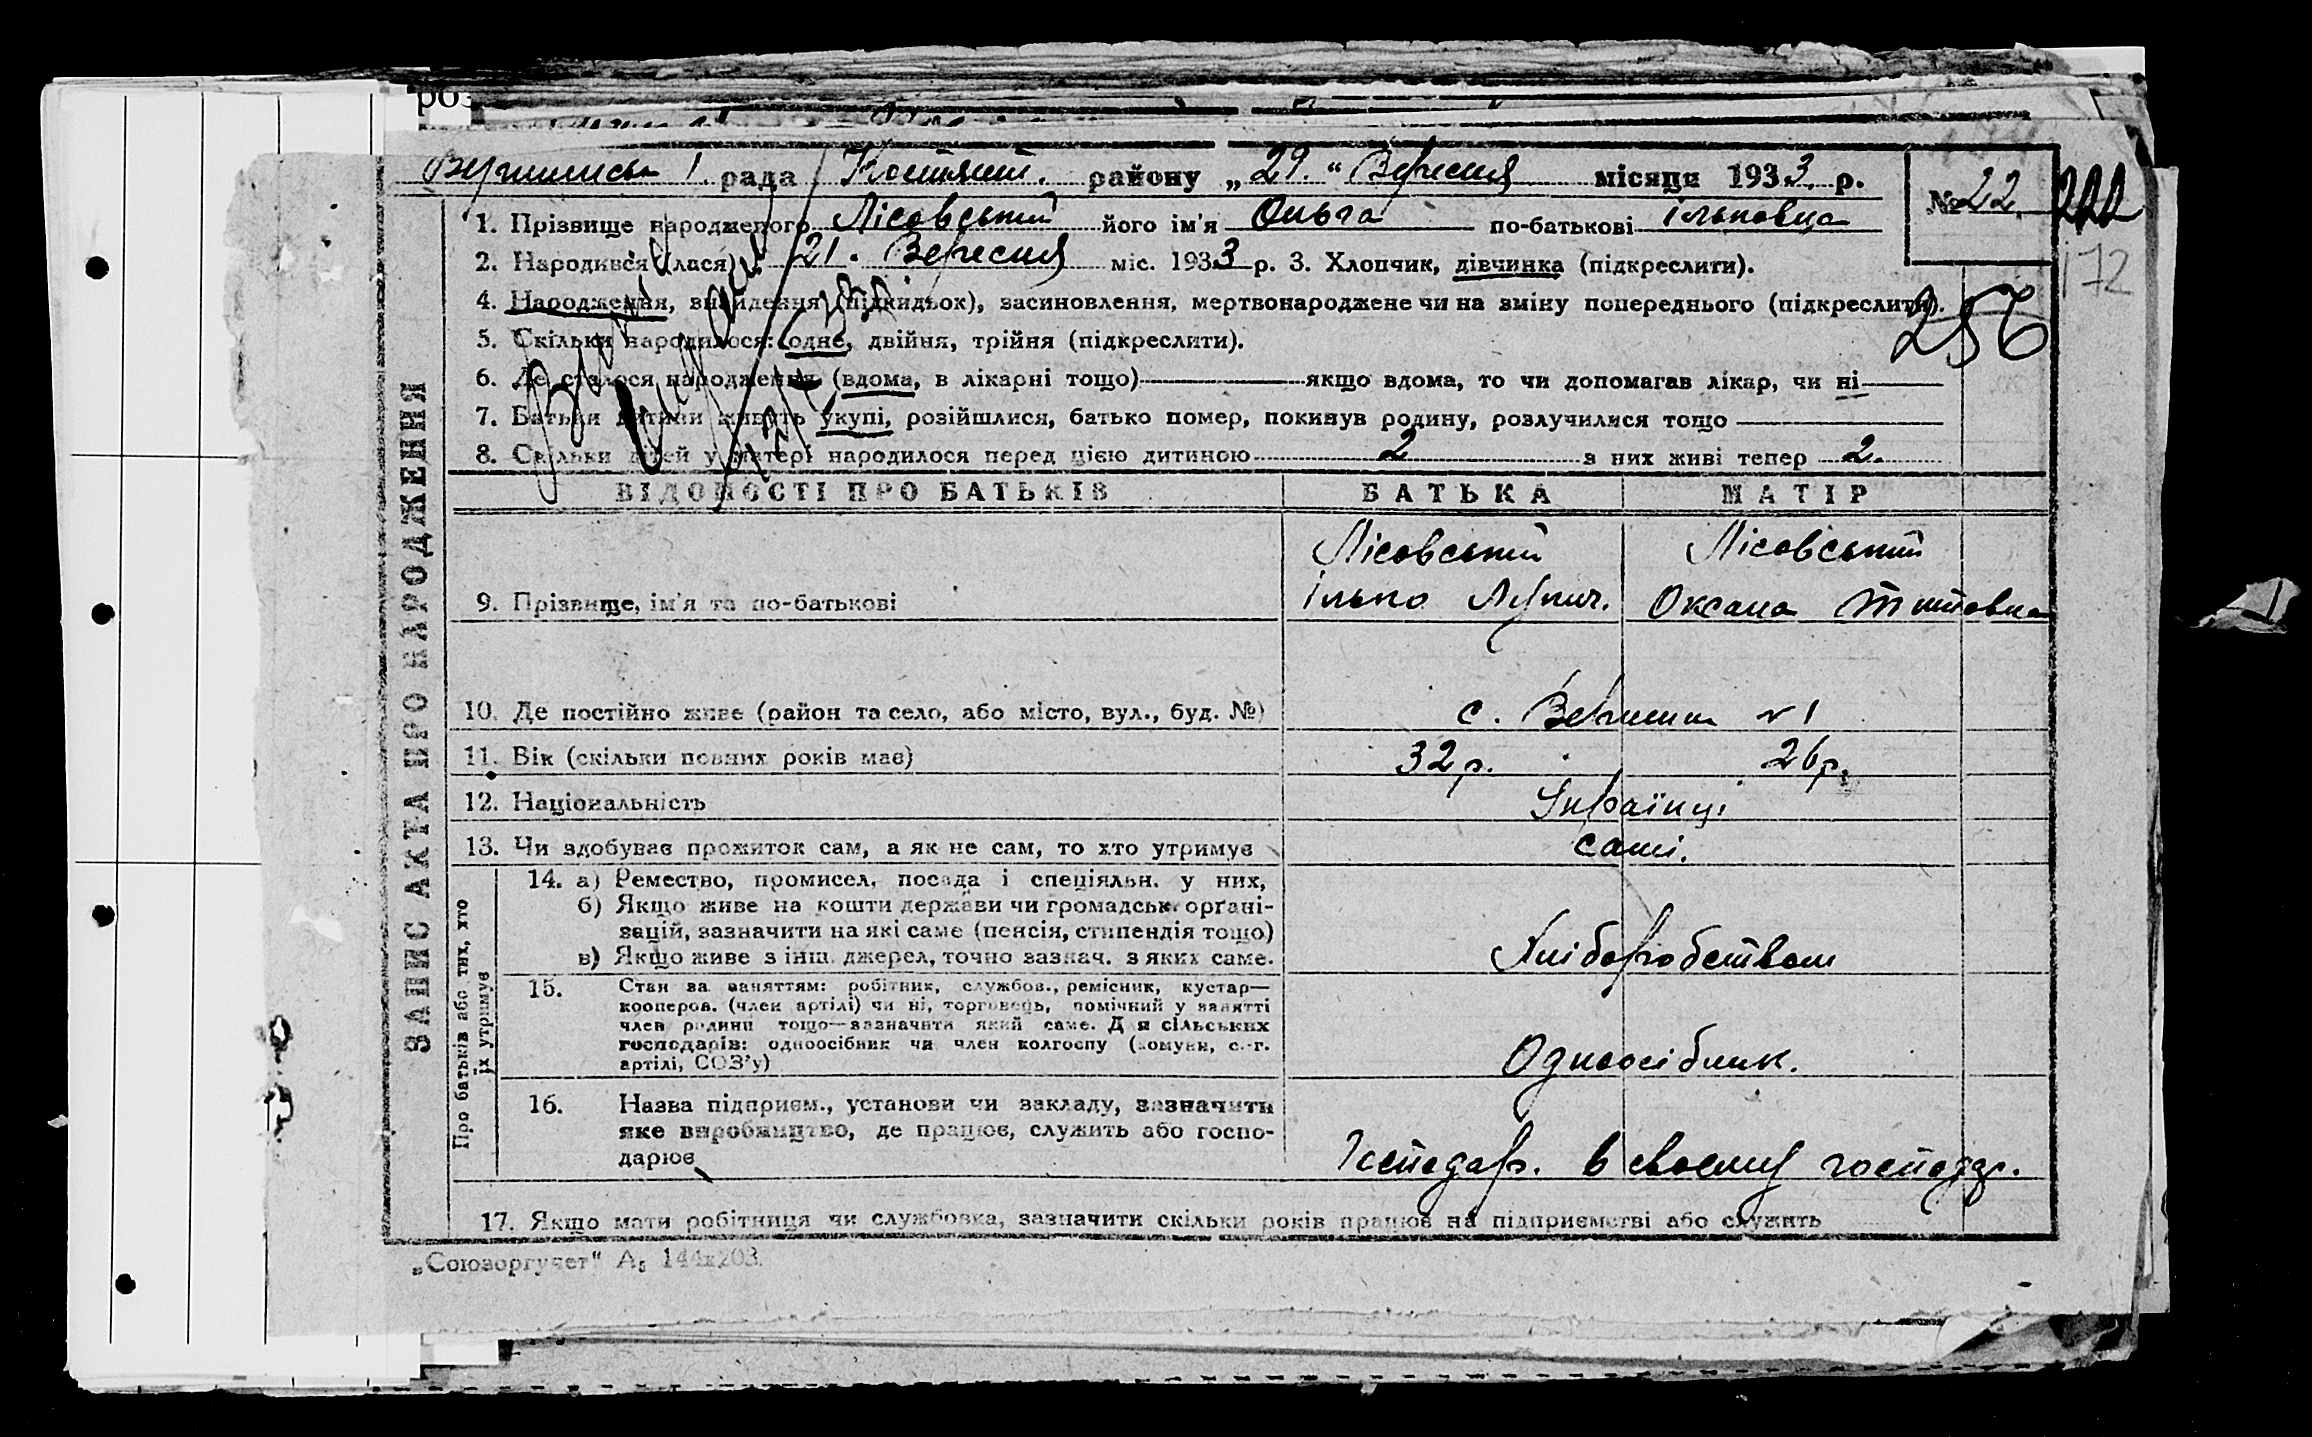 роз
рада району „29.“ Вересня місяця 1933 р.
№ 22.
172
1. Прізвище народженого Лісовський його ім'я Ольга по-батькові Ільковна
2. Народився (лася) 21. Вересня міс. 1933 р. 3. Хлопчик, дівчинка (підкреслити).
4. Народження, знайдення (підкидьок), засиновлення, мертвонароджене чи на зміну попереднього (підкреслити).
256
5. Скільки народилося: одне, двійня, трійня (підкреслити).
6. Де сталося народження (вдома, в лікарні тощо) якщо вдома, то чи допомагав лікар, чи ні
7. Батьки дитини живуть укупі, розійшлися, батько помер, покинув родину, розлучилися тощо
8. Скільки дітей у матері народилося перед цією дитиною 2 з них живі тепер 2.
ЗАПИС АКТА ПРО НАРОДЖЕННЯ
ВІДОМОСТІ ПРО БАТЬКІВ БАТЬКА МАТІР
Лісовський Лісовський
9. Прізвище, ім'я та по-батькові Ілько Оксана Титовна
10. Де постійно живе (район та село, або місто, вул., буд. №) с. №1
11. Вік (скільки повних років має) 32 р. 26 р.
12. Національність Українці
13. Чи здобуває прожиток сам, а як не сам, то хто утримує самі.
Про батьків або тих, хто
їх утримує
14. а) Ремество, промисел, посада і спеціяльн. у них,
б) Якщо живе на кошти держави чи громадськ. орґані-
зацій, зазначити на які саме (пенсія, стипендія тощо)
в) Якщо живе з інш. джерел, точно зазнач. з яких саме. Хліборобством
15. Стан за заняттям: робітник, службов., ремісник, кустар—
кооперов. (член артілі) чи ні, торговець, помічний у занятті
член родини тощо—зазначити який саме. Для сільських
господарів: одноосібник чи член колгоспу (комуни, с.-г.
артілі, СОЗ'у) Одноосібник.
16. Назва підприєм., установи чи закладу, зазначити
яке виробництво, де працює, служить або госпо-
дарює Господар. в своєму господар.
17. Якщо мати робітниця чи службовка, зазначити скільки років працює на підприємстві або служить
„Союзоргучет“ А₅ 144х203.